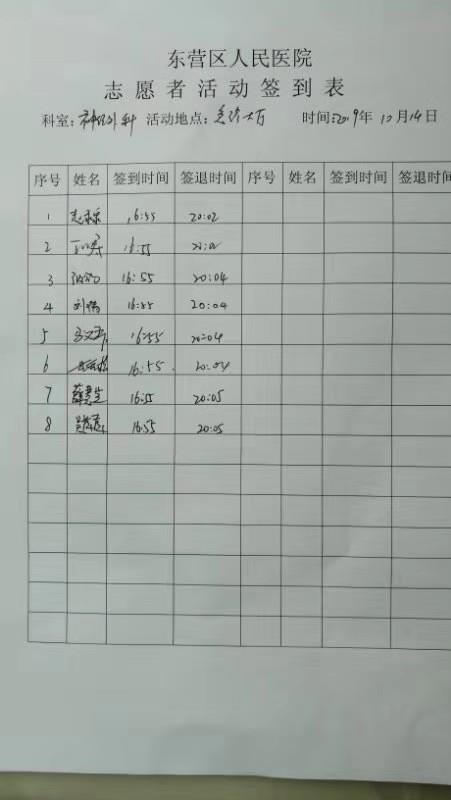 东营区人民医院
志愿者活动签到表
科室：神经外科 活动地点：急诊大厅 时间：2019年 10月14日
序号 姓名 签到时间 签退时间 序号 姓名 签到时间 签退时间
1 16:55 20:02
2 16:55 20:02
3 16:55 20:04
4 刘 16:55 20:04
5 16:55 20:04
6 16:55 20:04
7 薛 16:55 20:05
8 16:55 20:05